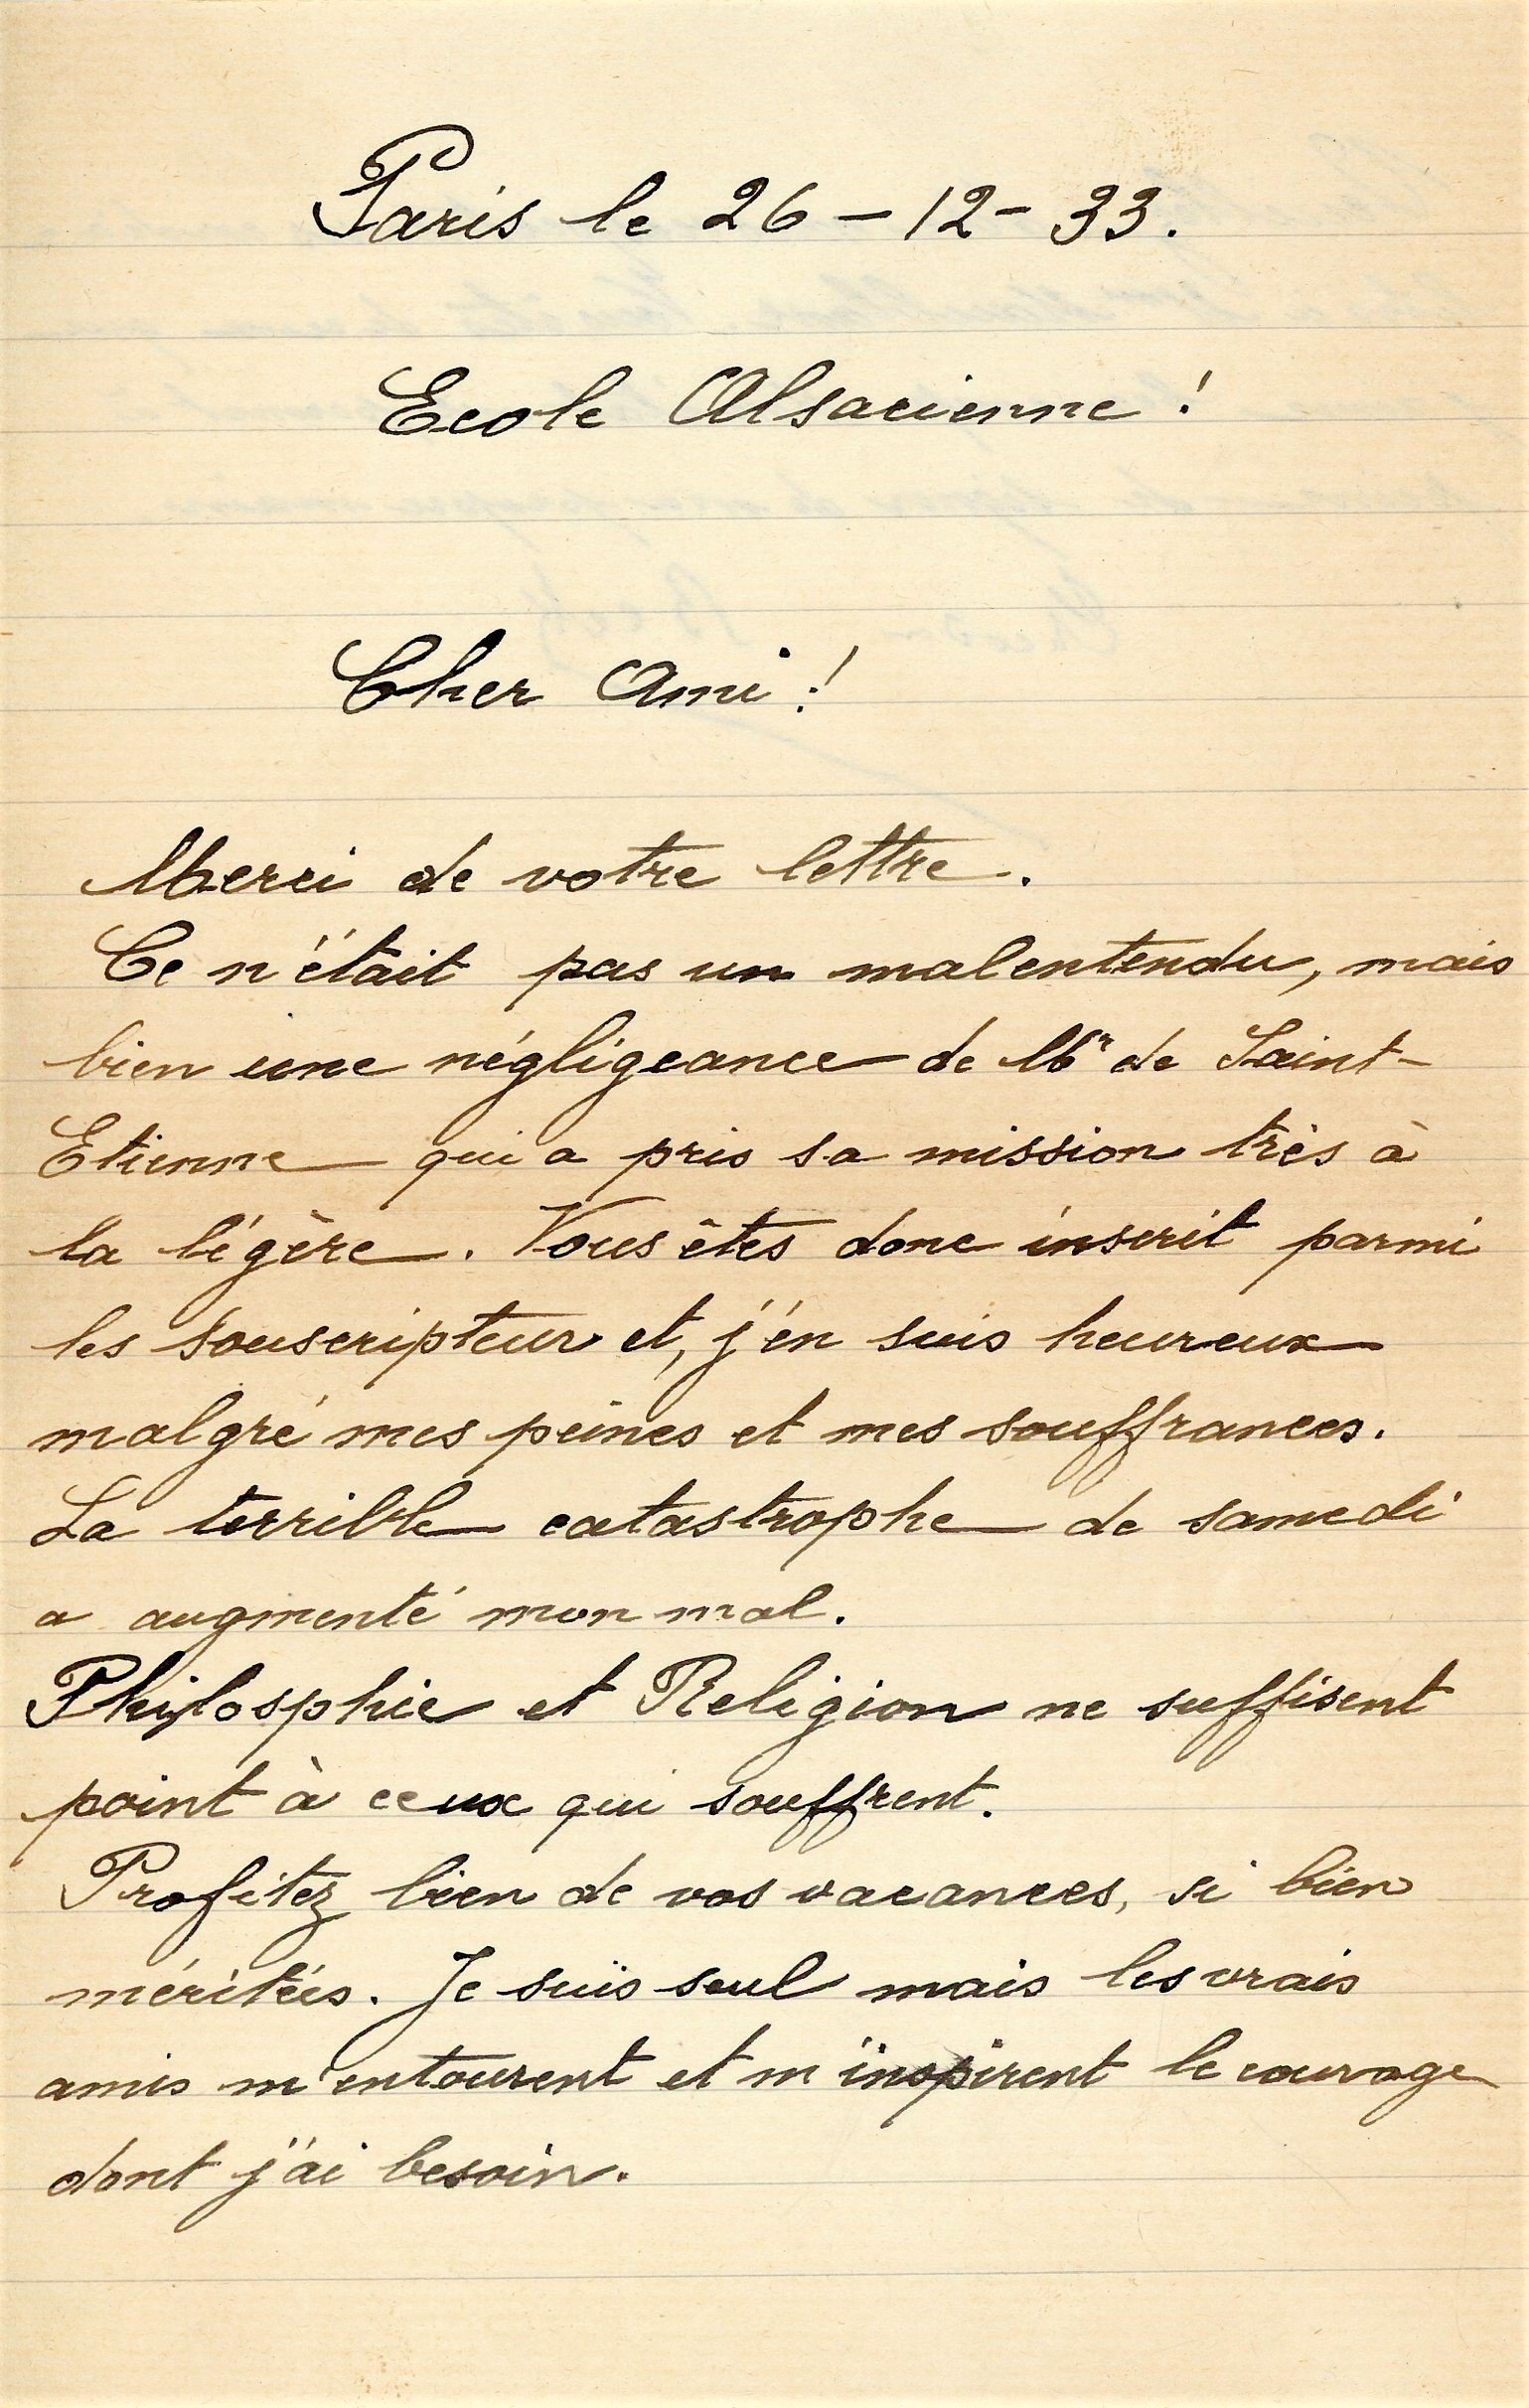 Paris le 26 - 12 - 33.
Ecole Alsacienne !
Cher Ami !
Merci de votre lettre.
Ce n'était pas un malentendu, mais
bien une négligeance de Mr de Saint-
Etienne qui a pris sa mission très à
la légère. Vous êtes donc inscrit parmi
les souscripteur et, j'en suis heureux
malgré mes peines et mes souffrances.
La terrible catastrophe de samedi
a augmenté mon mal.
Philosphie et Religion ne suffisent
point à ceux qui souffrent.
Profitez bien de vos vacances, si bien
méritées. Je suis seul mais les vrais
amis m'entourent et m'inspirent le courage
dont j'ai besoin.